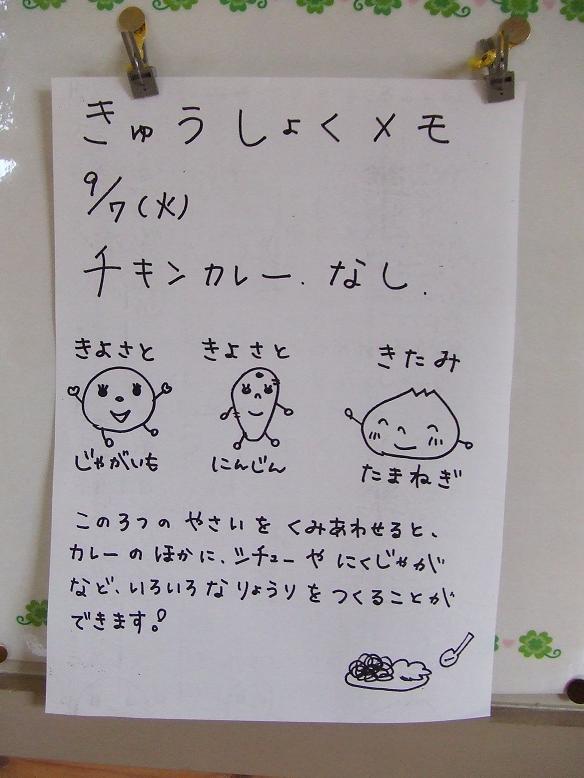 きゅうしょくメモ
9/7(火)
チキンカレー.なし.
きよさと きよさと きたみ
じゃがいも にんじん たまねぎ
この3つの やさいを くみあわせると、
カレーの ほかに、シチューや にくじゃが
など、いろいろな りょうりを つくることが
できます!